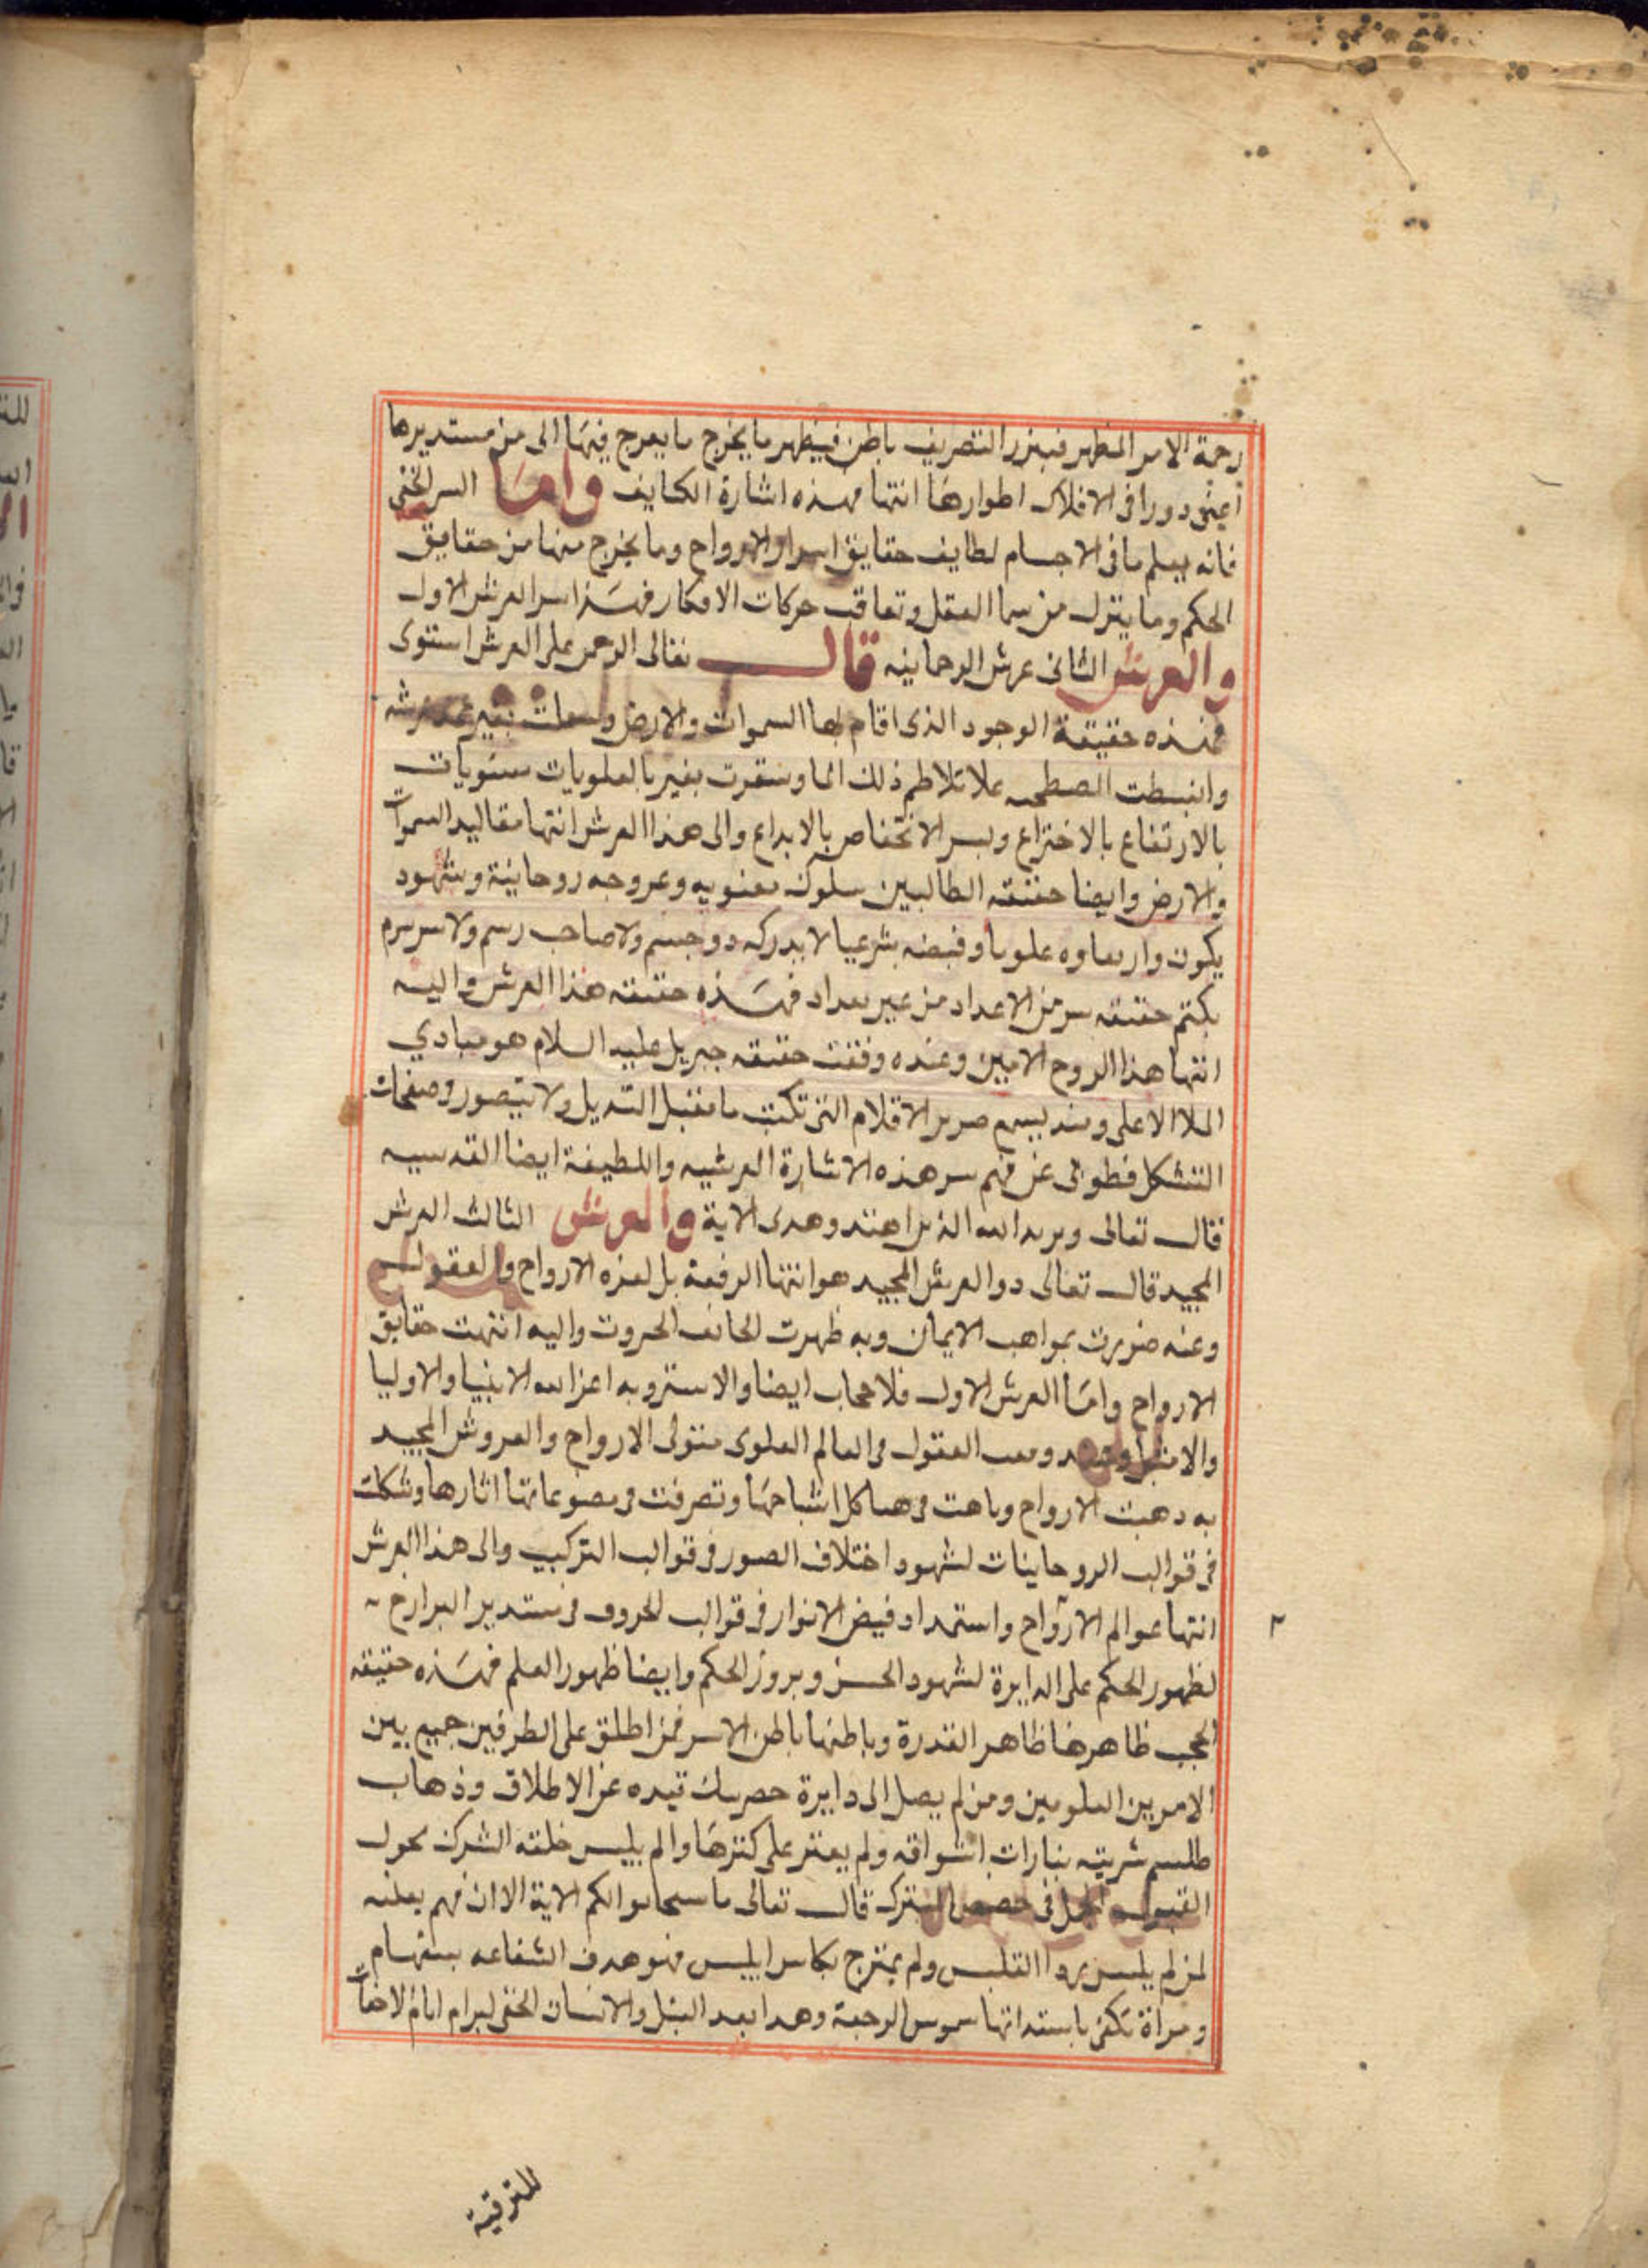 رحمة الامر المظهر فيبرز التصريف باطن فيظهر ما يخرج ما يعرج فيها الى من مستديرها
اعين دورا فى الافلاك اطوارها انتها فهذه اشارة الكايف واما السر الخفى
فانه يعلم ما فى الاجسام لطايف حقايق اسرار الارواح وما يخرج منها من حقايق
الحكم وما يتنزل من سما العقل وتعاقب حركات الافكار فهذا سر العرش الاول
والعرش الثانى عرش الرحمانيه قال تعالى الرحمن على العرش استوى
فهذه حقيقة الوجود الذى اقام بها السموات والارض بغير عمد عرشه
وانبسطت علا تلاطم ذلك الما وستقرت بغير بالعلويات ستويات
بالارتفاع بالاختراع وبسر الاختصاص بالابداع والى هذا العرش انتها مقاليد السموات
والارض وايضا حقيقته الطالبين سلوك معنويه وعروجه روحانية وشهود
يكون علويا وقبضه لا يدركه ذو جسم ولا صاحب رسم ولا سر سرم
يكتم حقيقه سر من الاعداد من غير تعداد فهذه حقيقه هذا العرش واليه
انتها هذا الروح الامين وعنده وقفت حقيقه جبريل عليه السلام هو مبادي
الملا الاعلى ومنه يسمع صرير الاقلام التى تكتب ما تقبل التبديل ولا يتصور وصفحات
التشكل فطوبى عن فهم سر هذه الاشارة العرشيه واللطيفة ايضا القدسيه
قال تعالى ويزيد الله الذين اهتدو هدى الاية والعرش الثالث العرش
المجيد قال تعالى ذوا العرش المجيد هو انتها الرفعة بل لعزه الارواح والعقول
وعنه ضربت بمواهب الايمان وبه ظهرت لطايف الحروف واليه انتهت حقايق
الارواح واما العرش الاول فلا حجاب ايضا والاستر وبه اعز الله الانبيا والاوليا
العقول فى العالم العلوى منتولى الارواح والعروش المجيد
به ذهبت الارواح وباهت فى هياكل اشباحها وتصرفت فى مصنوعاتها اثارها وشكلت
فى قوالب الروحانيات لشهود اختلاف الصور فى قوالب التركيب والى هذا العرش
انتها عوالم الارواح واستمداد فيض الانوار فى قوالب الحروف فى مستدير البرازخ
لظهور الحكم على الدايرة لشهود الحسن وبروز الحكم وايضا ظهور العلم فهذه حقيقه
الحجب ظاهرها ظاهر القدرة وباطنها باطن الاسر فمن اطلق على الطرفين جميع بين
الامرين العلومين ومن لم يصل الى دايرة قيده عن الاطلاق وذهاب
طلسم بنارات اشواقه ولم يعثر على كنزها والم يلبس خلته الشرك بحول
القبول فى الشرك قال تعالى الاية الا ان فهم
لمن لم يلبس ولم يمتزج بكاس ابليس فهو هدف الشفاعه
ومراة تكفى وهدا بعد والانسان الخفى
للترقية